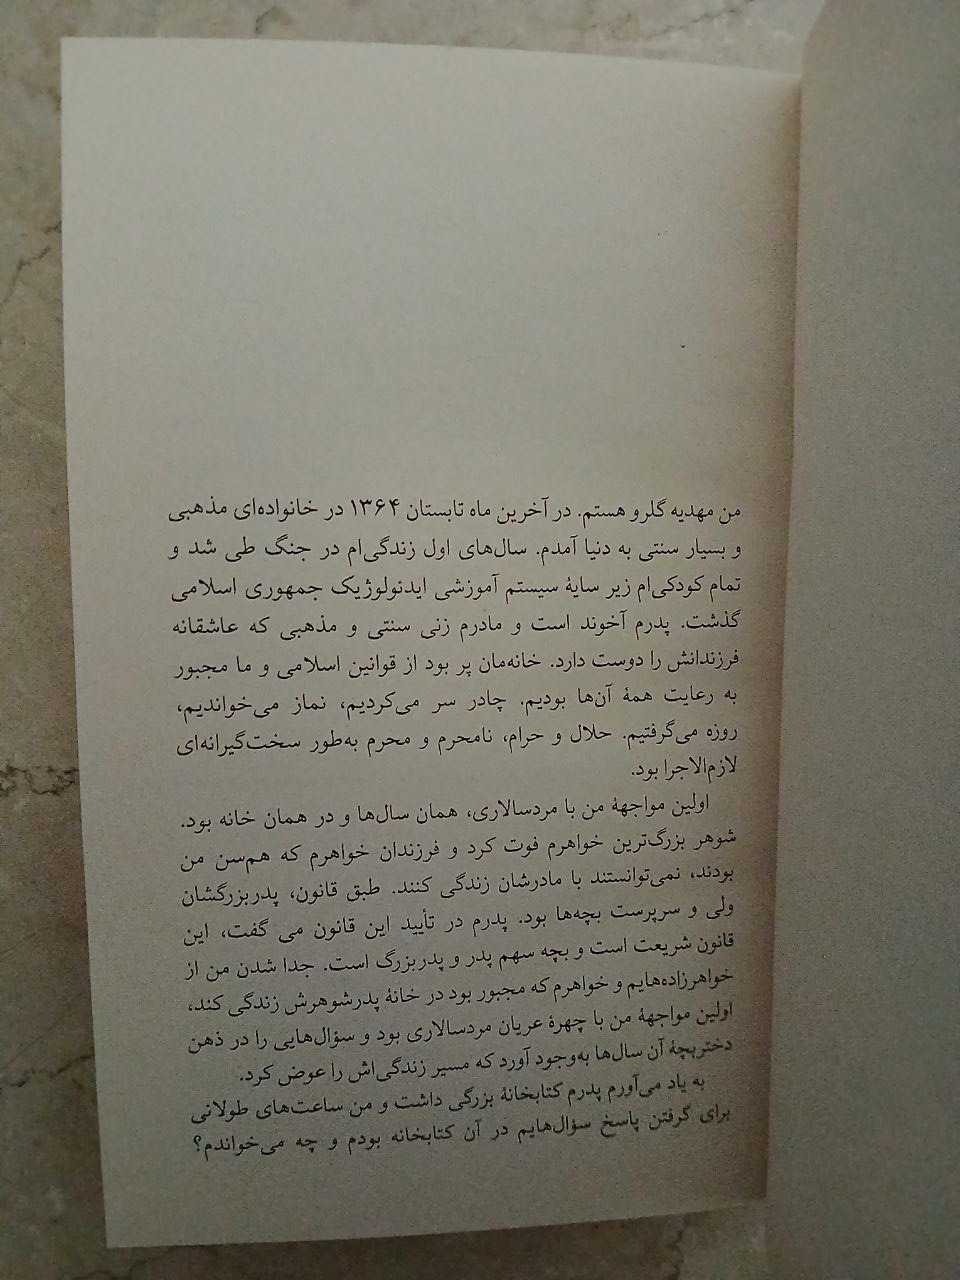 من مهدیه گلرو هستم. در آخرین ماه تابستان ۱۳۶۴ در خانواده‌ای مذهبی
و بسیار سنتی به دنیا آمدم. سال‌های اول زندگی‌ام در جنگ طی شد و
تمام کودکی‌ام زیر سایهٔ سیستم آموزشی ایدئولوژیک جمهوری اسلامی
گذشت. پدرم آخوند است و مادرم زنی سنتی و مذهبی که عاشقانه
فرزندانش را دوست دارد. خانه‌مان پر بود از قوانین اسلامی و ما مجبور
به رعایت همهٔ آن‌ها بودیم. چادر سر می‌کردیم، نماز می‌خواندیم،
روزه می‌گرفتیم. حلال و حرام، نامحرم و محرم به‌طور سخت‌گیرانه‌ای
لازم‌الاجرا بود.
اولین مواجههٔ من با مردسالاری، همان سال‌ها و در همان خانه بود.
شوهر بزرگ‌ترین خواهرم فوت کرد و فرزندان خواهرم که هم‌سن من
بودند، نمی‌توانستند با مادرشان زندگی کنند. طبق قانون، پدربزرگشان
ولی و سرپرست بچه‌ها بود. پدرم در تأیید این قانون می گفت، این
قانون شریعت است و بچه سهم پدر و پدربزرگ است. جدا شدن من از
خواهرزاده‌هایم و خواهرم که مجبور بود در خانهٔ پدرشوهرش زندگی کند،
اولین مواجههٔ من با چهرهٔ عریان مردسالاری بود و سؤال‌هایی را در ذهن
دختربچهٔ آن سال‌ها به‌وجود آورد که مسیر زندگی‌اش را عوض کرد.
به یاد می‌آورم پدرم کتابخانهٔ بزرگی داشت و من ساعت‌های طولانی
برای گرفتن پاسخ سؤال‌هایم در آن کتابخانه بودم و چه می‌خواندم؟